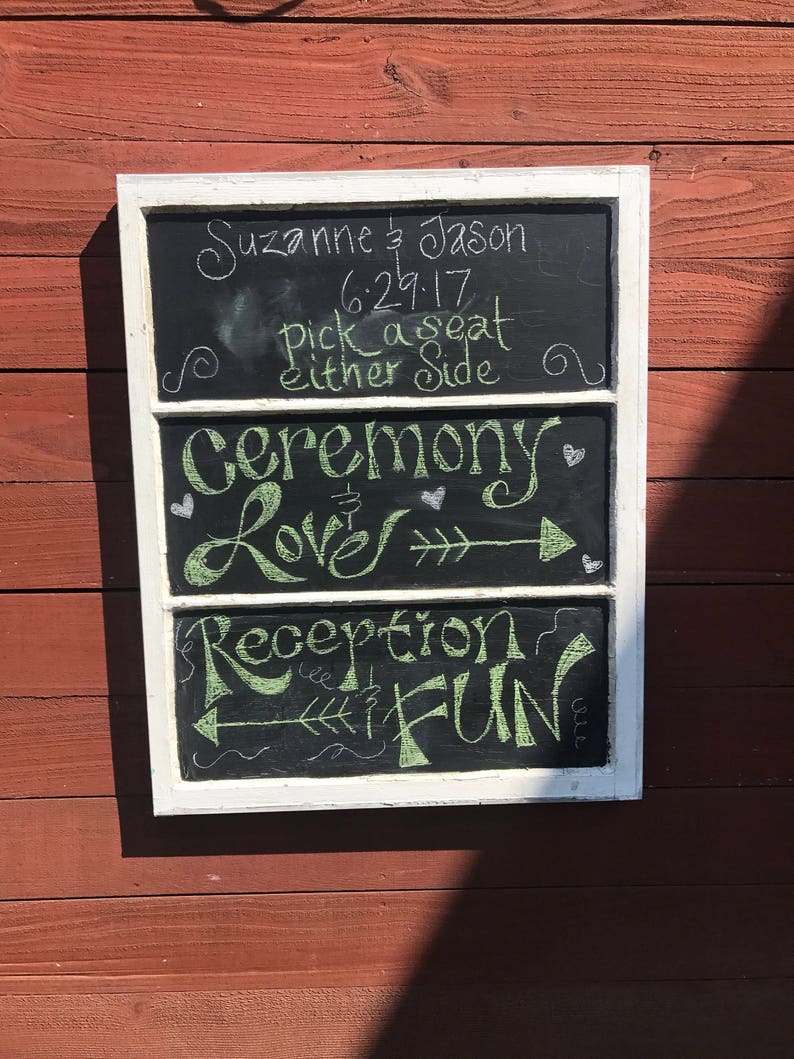 Suzanne & Jason
6.29.17
pick a seat
either Side
Ceremony
& Love
Reception
& FUN